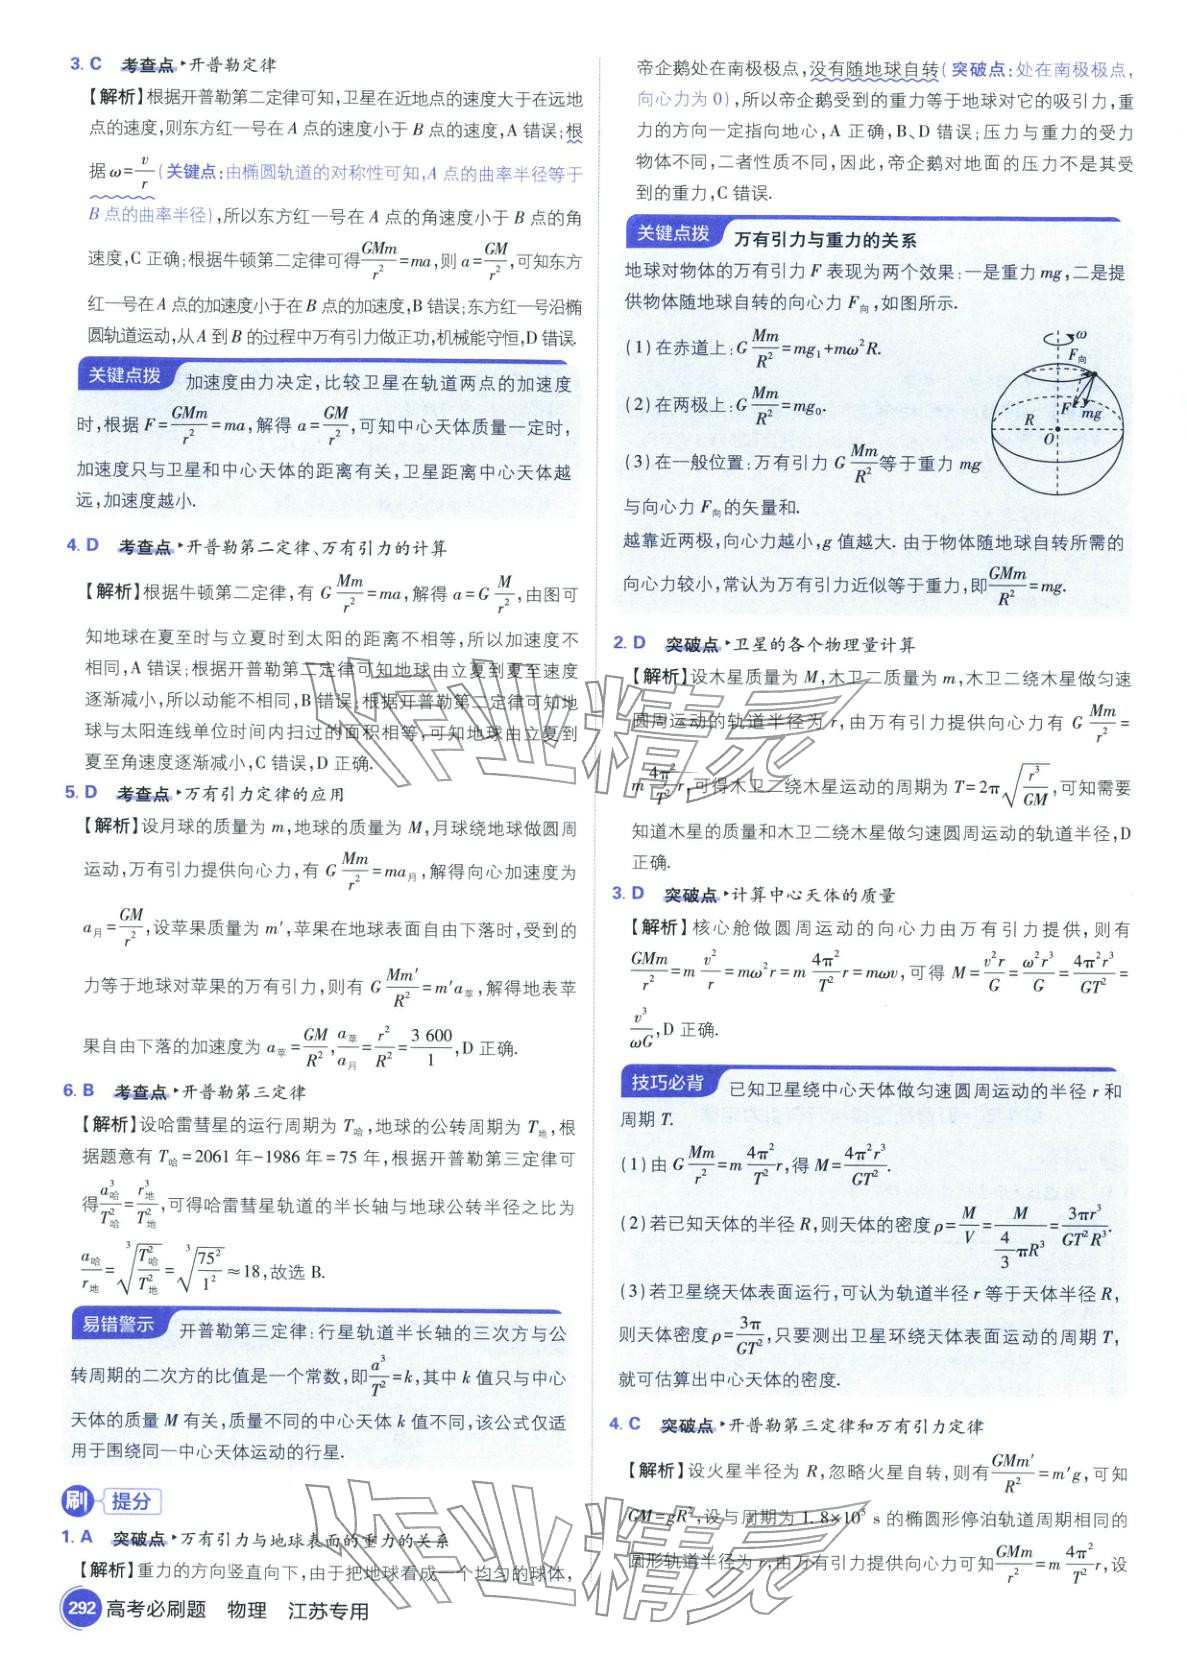 3. C 考查点▸开普勒定律
【解析】根据开普勒第二定律可知,卫星在近地点的速度大于在远地
点的速度,则东方红一号在 A 点的速度小于 B 点的速度,A 错误;根
据 ω=v/r(关键点:由椭圆轨道的对称性可知,A 点的曲率半径等于
B 点的曲率半径),所以东方红一号在 A 点的角速度小于 B 点的角
速度,C 正确;根据牛顿第二定律可得GMm/r²=ma,则 a=GM/r²,可知东方
红一号在 A 点的加速度小于在 B 点的加速度,B 错误;东方红一号沿椭
圆轨道运动,从 A 到 B 的过程中万有引力做正功,机械能守恒,D 错误.
关键点拨 加速度由力决定,比较卫星在轨道两点的加速度
时,根据 F=GMm/r²=ma,解得 a=GM/r²,可知中心天体质量一定时,
加速度只与卫星和中心天体的距离有关,卫星距离中心天体越
远,加速度越小.
4. D 考查点▸开普勒第二定律、万有引力的计算
【解析】根据牛顿第二定律,有 G Mm/r²=ma,解得 a=G M/r²,由图可
知地球在夏至时与立夏时到太阳的距离不相等,所以加速度不
相同,A 错误;根据开普勒第二定律可知地球由立夏到夏至速度
逐渐减小,所以动能不相同,B 错误;根据开普勒第二定律可知地
球与太阳连线单位时间内扫过的面积相等,可知地球由立夏到
夏至角速度逐渐减小,C 错误,D 正确.
5. D 考查点▸万有引力定律的应用
【解析】设月球的质量为 m,地球的质量为 M,月球绕地球做圆周
运动,万有引力提供向心力,有 G Mm/r²=ma月,解得向心加速度为
a月=GM/r²,设苹果质量为 m′,苹果在地球表面自由下落时,受到的
力等于地球对苹果的万有引力,则有 G Mm′/R²=m′a苹,解得地表苹
果自由下落的加速度为 a苹=GM/R²,a苹/a月=r²/R²=3 600/1,D 正确.
6. B 考查点▸开普勒第三定律
【解析】设哈雷彗星的运行周期为 T哈,地球的公转周期为 T地,根
据题意有 T哈=2061 年-1986 年=75 年,根据开普勒第三定律可
得a³哈/T²哈=r³地/T²地,可得哈雷彗星轨道的半长轴与地球公转半径之比为
a哈/r地=∛(T²哈/T²地)=∛(75²/1²)≈18,故选 B.
易错警示 开普勒第三定律:行星轨道半长轴的三次方与公
转周期的二次方的比值是一个常数,即a³/T²=k,其中 k 值只与中心
天体的质量 M 有关,质量不同的中心天体 k 值不同,该公式仅适
用于围绕同一中心天体运动的行星.
刷 提分
1. A 突破点▸万有引力与地球表面的重力的关系
【解析】重力的方向竖直向下,由于把地球看成一个均匀的球体,
292 高考必刷题 物理 江苏专用
帝企鹅处在南极极点,没有随地球自转(突破点:处在南极极点,
向心力为 0),所以帝企鹅受到的重力等于地球对它的吸引力,重
力的方向一定指向地心,A 正确,B、D 错误;压力与重力的受力
物体不同,二者性质不同,因此,帝企鹅对地面的压力不是其受
到的重力,C 错误.
关键点拨 万有引力与重力的关系
地球对物体的万有引力 F 表现为两个效果:一是重力 mg,二是提
供物体随地球自转的向心力 F向,如图所示.
(1)在赤道上:G Mm/R²=mg₁+mω²R.
(2)在两极上:G Mm/R²=mg₀.
(3)在一般位置:万有引力 G Mm/R²等于重力 mg
与向心力 F向的矢量和.
ω
F向
F
mg
R
O
越靠近两极,向心力越小,g 值越大. 由于物体随地球自转所需的
向心力较小,常认为万有引力近似等于重力,即GMm/R²=mg.
2. D 突破点▸卫星的各个物理量计算
【解析】设木星质量为 M,木卫二质量为 m,木卫二绕木星做匀速
圆周运动的轨道半径为 r,由万有引力提供向心力有 G Mm/r²=
m 4π²/T² r,可得木卫二绕木星运动的周期为 T=2π√(r³/GM),可知需要
知道木星的质量和木卫二绕木星做匀速圆周运动的轨道半径,D
正确.
3. D 突破点▸计算中心天体的质量
【解析】核心舱做圆周运动的向心力由万有引力提供,则有
GMm/r²=m v²/r=mω²r=m 4π²/T² r=mωv,可得 M=v²r/G=ω²r³/G=4π²r³/GT²=
v³/ωG,D 正确.
技巧必背 已知卫星绕中心天体做匀速圆周运动的半径 r 和
周期 T.
(1)由 G Mm/r²=m 4π²/T² r,得 M=4π²r³/GT².
(2)若已知天体的半径 R,则天体的密度 ρ=M/V=M/(4/3 πR³)=3πr³/GT²R³.
(3)若卫星绕天体表面运行,可认为轨道半径 r 等于天体半径 R,
则天体密度 ρ=3π/GT²,只要测出卫星环绕天体表面运动的周期 T,
就可估算出中心天体的密度.
4. C 突破点▸开普勒第三定律和万有引力定律
【解析】设火星半径为 R,忽略火星自转,则有GMm′/R²=m′g,可知
GM=gR²,设与周期为 1.8×10⁵ s 的椭圆形停泊轨道周期相同的
圆形轨道半径为 r,由万有引力提供向心力可知GMm/r²=m 4π²/T² r,设
作业精灵
作业精灵